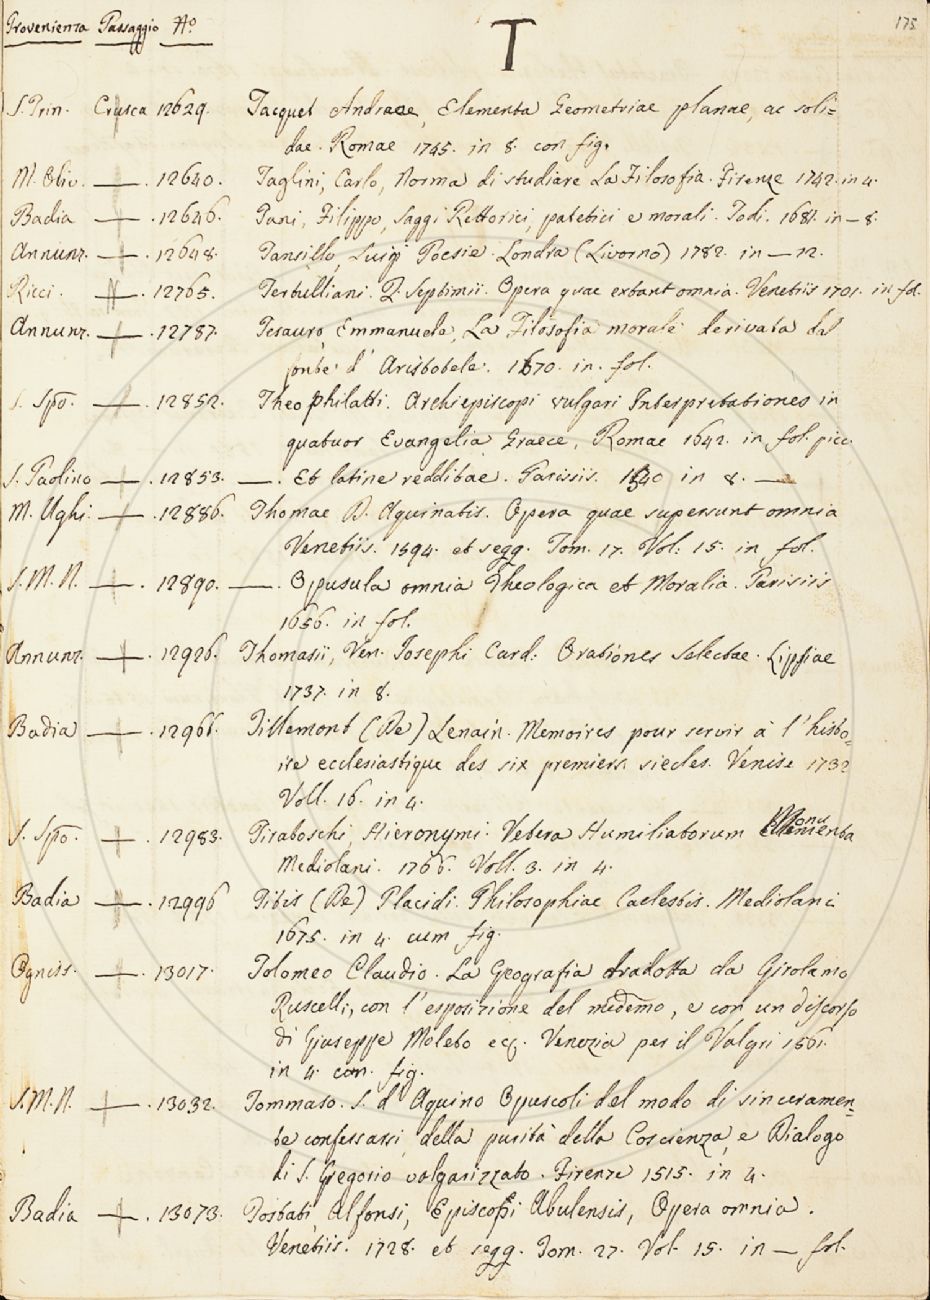 175
Provenienza Passaggio No
T
S. Prin. Crusca 12629. Tacquet Andreae, Elementa Geometriae planae, ac soli=
dae. Romae 1745. in 8. con fig.
M. Oliv. — . 12640. Taglini, Carlo, Norma di studiare La Filosofia. Firenze 1742. in 4.
Badia — . 12646. Tani, Filippo, Saggi Rettorici, patetici e morali. Todi. 1681. in — 8.
Annunz. — . 12648. Tansillo, Luigi Poesie. Londra (Livorno) 1782. in — 12.
Ricci. — . 12765. Tertulliani. Q. Septimii. Opera quae extant omnia. Venetiis 1701. in fol.
Annunz. — . 12787. Tesauro, Emmanuele, La Filosofia morale derivata dal
fonte d' Aristotele. 1670. in. fol.
S. Spo. — . 12852. Theophilatti. Archiepiscopi vulgari Interpretationes in
quatuor Evangelia Graece, Romae 1642. in fol. picc.
S. Paolino — . 12853. — . Et latine redditae. Parisiis. 1540 in 8. —
M. Ughi. — . 12886. Thomae D. Aquinatis. Opera quae supersunt omnia
Venetiis. 1594. et segg. Tom. 17. Vol. 15. in fol.
S. M. N. — . 12890. — . Opusula omnia Theologica et Moralia. Parisiis
1656. in fol.
Annunz. — . 12926. Thomasii, Ven. Josephi Card. Orationes Selectae. Lipsiae
1737. in 8.
Badia — . 12966. Tillemont (De) Lenain. Memoires pour servir à l'histo=
ire ecclesiastique des six premiers siecles. Venise 1732
Voll. 16. in 4.
S. Spo. — . 12983. Tiraboschi, Hieronymi. Vetera Humiliatorum Monumenta
Mediolani. 1766. Voll. 3. in 4.
Badia — . 12996 Titis (De) Placidi. Philosophiae Caelestis. Mediolani
1675. in 4. cum fig.
Ogniss. — . 13017. Tolomeo Claudio. La Geografia tradotta da Girolamo
Ruscelli, con l'esposizione del medemo, e con un discorso
di Giuseppe Moleto ecc. Venezia per il Valgri 1561.
in 4. con. fig.
S. M. N. — . 13032. Tommaso. S. d' Aquino Opuscoli del modo di sinceramen=
te confessarsi, della purità della Coscienza, e Dialogo
di S. Gregorio volgarizzato. Firenze 1515. in 4.
Badia — . 13073. Tostati, Alfonsi, Episcopi Abulensis, Opera omnia.
Venetiis. 1728. et segg. Tom. 27. Vol. 15. in — fol.